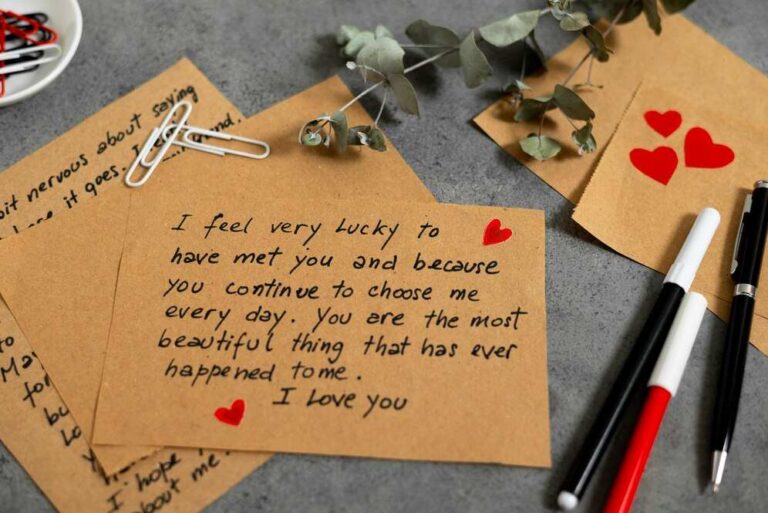 bit nervous about saying
it goes. I
I feel very Lucky to
have met you and because
you continue to choose me
every day. You are the most
beautiful thing that has ever
happened to me.
I Love you
to
for
bu
Lo
I hope
about me